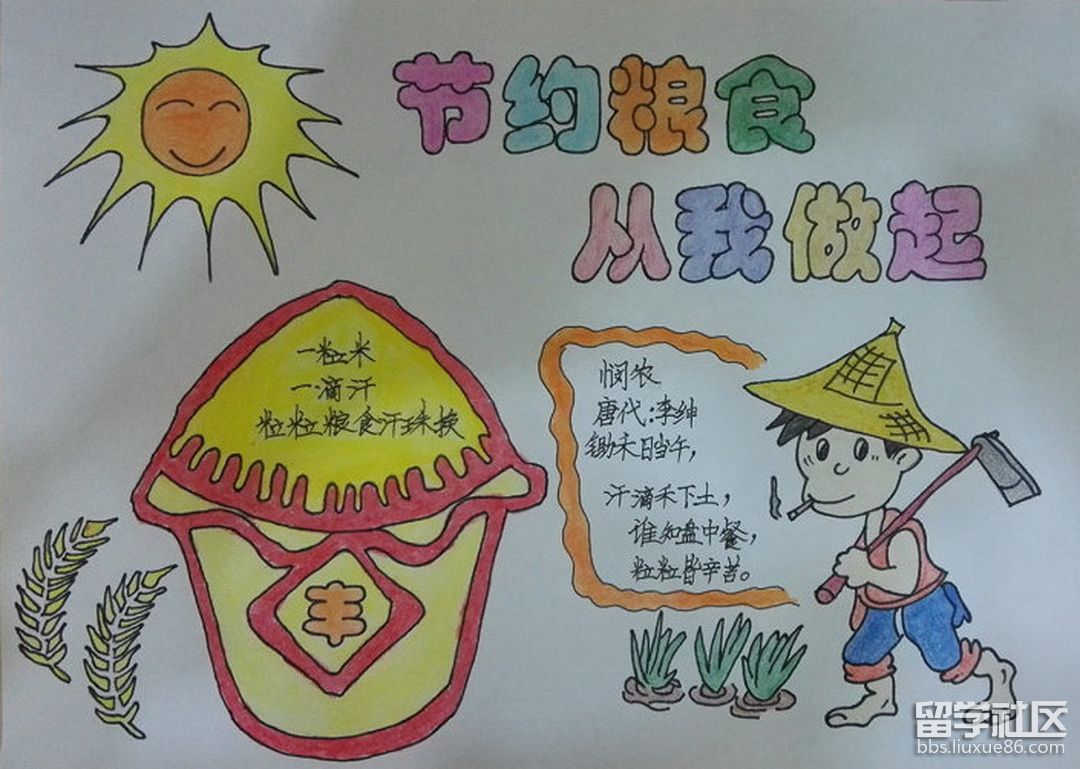 节约粮食
从我做起
一粒米
一滴汗
粒粒粮食汗珠换
丰
悯农
唐代:李绅
锄禾日当午,
汗滴禾下土,
谁知盘中餐,
粒粒皆辛苦。
留学社区
bbs.liuxue86.com